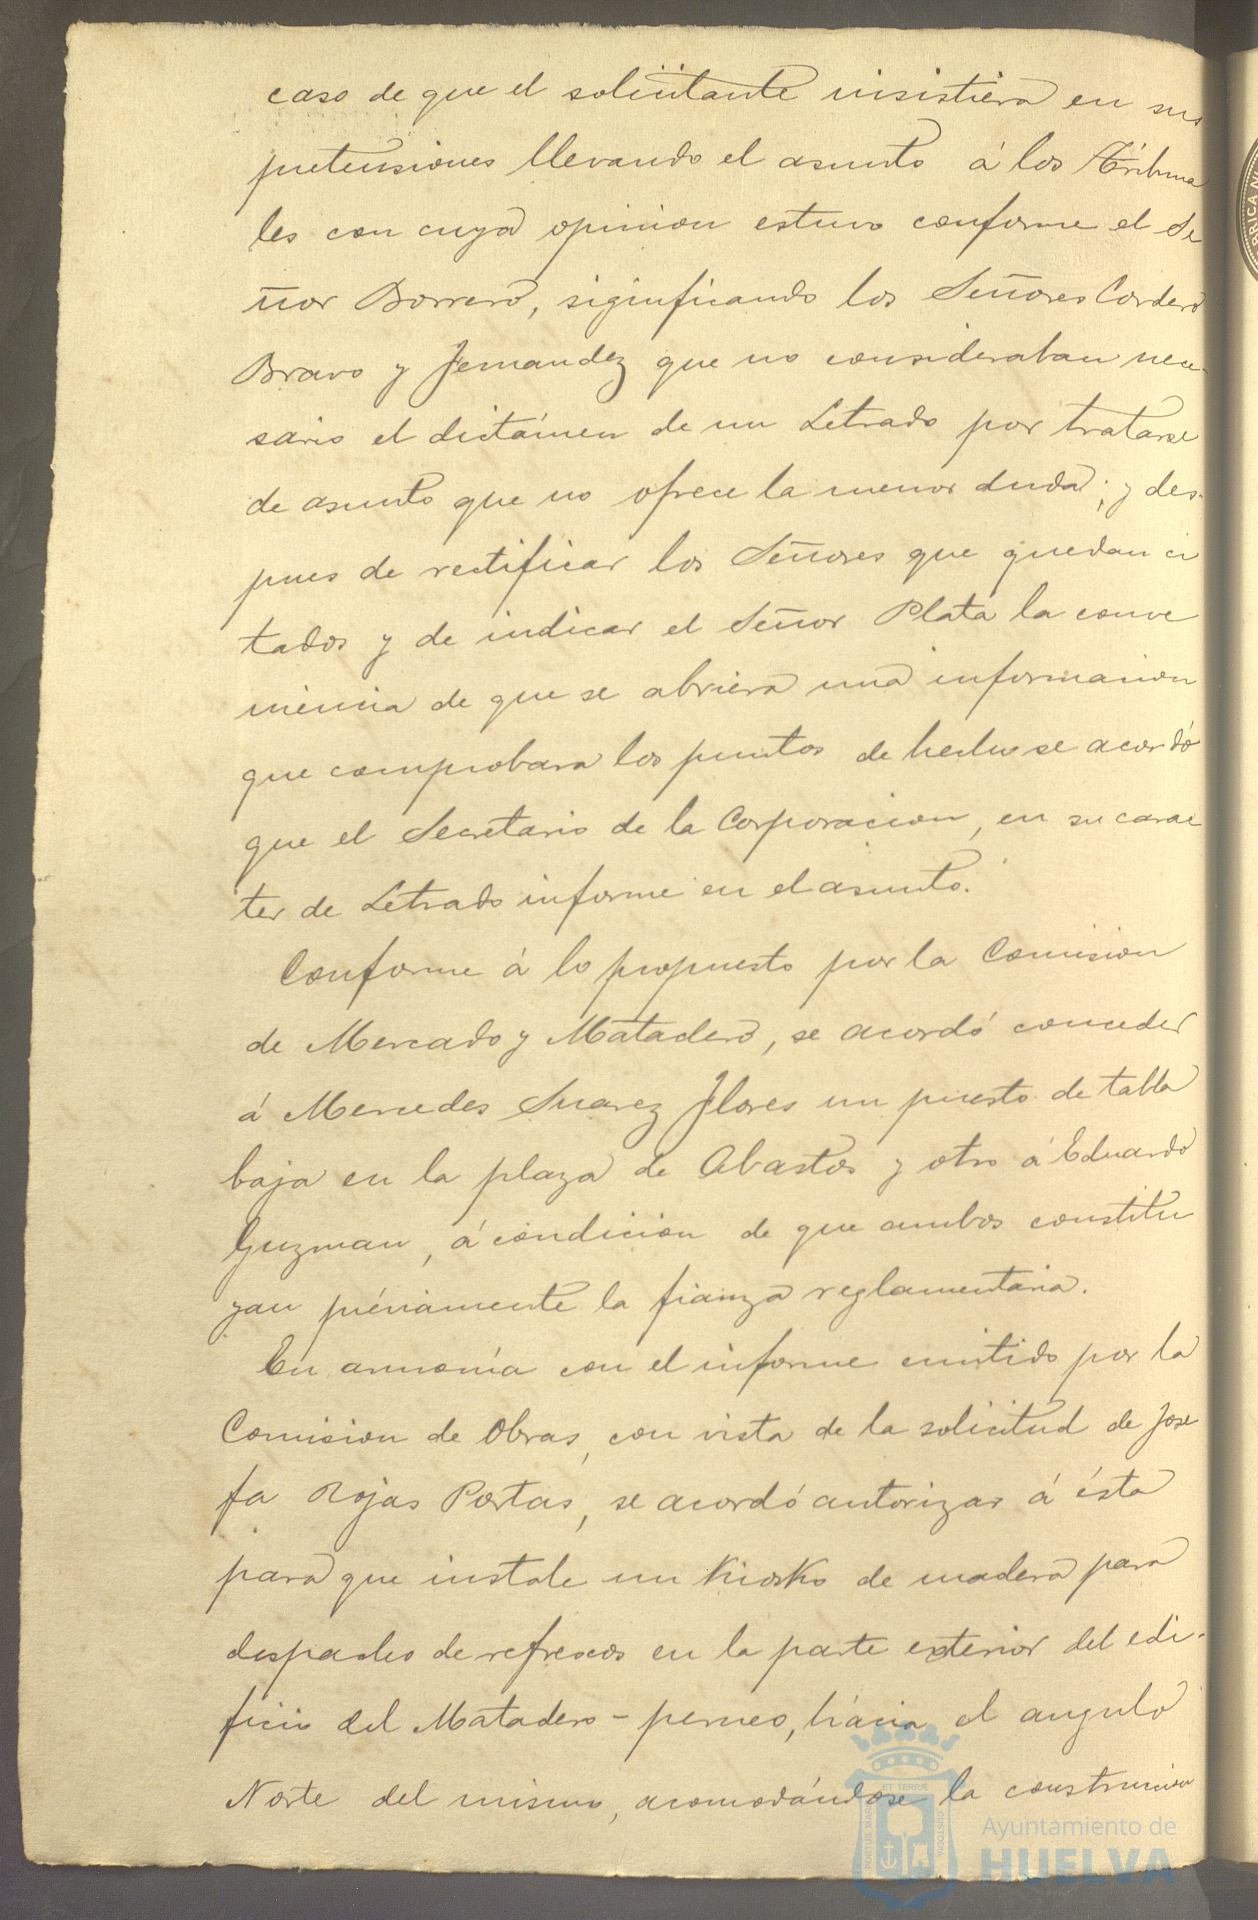 caso de que el solicitante insistiera en sus
pretensiones llevando el asunto á los Tribuna
les con cuya opinion estuvo conforme el Se
ñor Borrero, siginficando los Señores Cordero
Bravo y Fernandez que no consideraban nece-
sario el dictámen de un Letrado por tratarse
de asunto que no ofrece la menor duda; y des-
pues de rectificar los Señores que quedan ci
tados y de indicar el Señor Plata la conve
niencia de que se abriera una informacion
que comprobara los puntos de hecho se acordó
que el Secretario de la Corporacion, en su carac
ter de Letrado informe en el asunto.
Conforme á lo propuesto por la Comision
de Mercado y Matadero, se acordó conceder
á Mercedes Suarez Flores un puesto de tabla
baja en la plaza de Abastos y otro á Eduardo
Guzman, á condicion de que ambos constitu
yan préviamente la fianza reglamentaria.
En armonía con el informe emitido por la
Comision de Obras, con vista de la solicitud de Jose
fa Rojas Portas, se acordó autorizar á ésta
para que instale un Kiosko de madera para
despacho de refrescos en la parte exterior del edi-
ficio del Matadero-perneo, hácia el angulo
Norte del mismo, acomodándose la construccion
PORTUS MARIS ET TERRÆ CUSTODIA
Ayuntamiento de
HUELVA